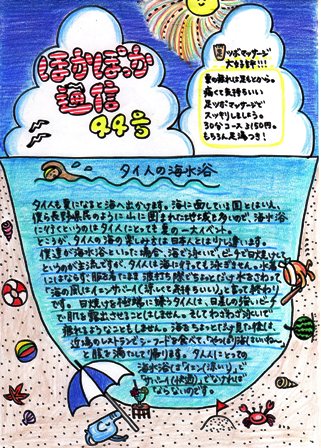 ぽかぽっか
通信
44号
足ツボマッサージ
大好評!!!
夏の疲れは足もとから。
痛くて気持ちいい
足ツボマッサージで
スッキリしましょう。
30分コース 3150円。
もちろん足湯つき!
タイ人の海水浴
タイ人も夏になると海へ出かけます。海に面している国とはいえ、
僕ら長野県民のように山に囲まれた地域も多いので、海水浴
に行くというのはタイ人にとっても夏の一大イベント。
ところが、タイ人の海の楽しみ方は日本人とは少し違います。
僕らが海水浴といった場合、海で泳いで、ビーチで日焼けして
というのが主流ですが、タイ人は海に行っても泳ぎません。水着
にもならず、服のまま波打ち際でちょこっと
「海の風はイェンサバーイ(涼しくて気持ちいい)」と言って終わり
です。日焼けを極端に嫌うタイ人は、日差しの強いビーチ
で肌を露出させることはしません。そしてわざわざ泳いで
疲れるようなこともしません。海をちょこっと見た後は、
近場のレストランでシーフードを食べて、「やっぱり海はいいねー」
と腹を満たして帰ります。タイ人にとっての
海水浴は「イェン(涼しい)」で
「サバーイ(快適)」でなければ
ならないのです。